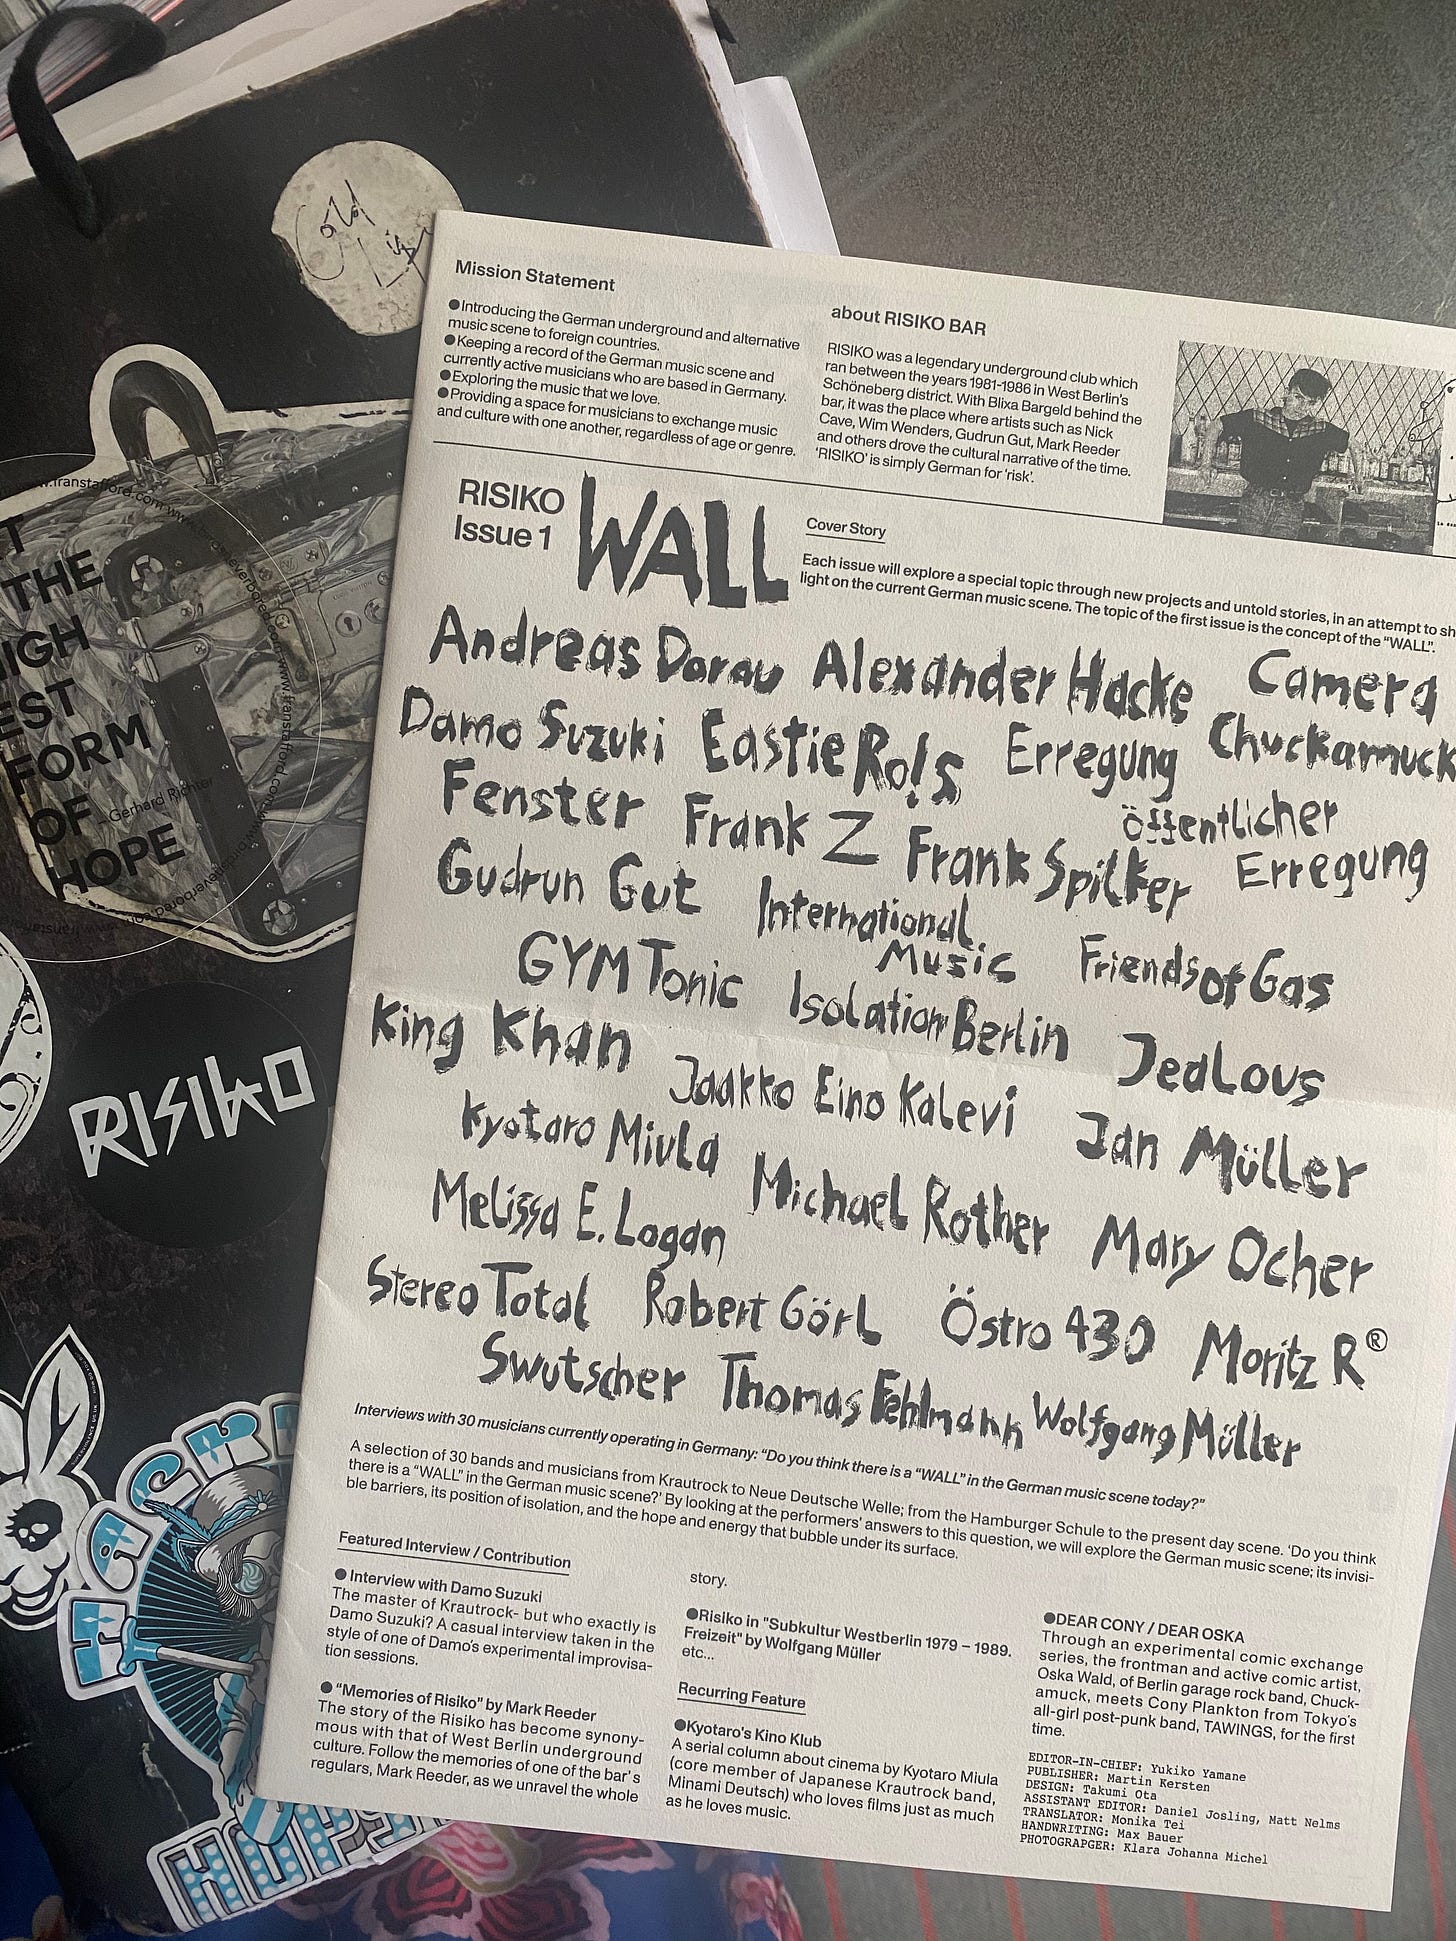 Cold
Mission Statement
●Introducing the German underground and alternative
music scene to foreign countries.
●Keeping a record of the German music scene and
currently active musicians who are based in Germany.
●Exploring the music that we love.
●Providing a space for musicians to exchange music
and culture with one another, regardless of age or genre.
about RISIKO BAR
RISIKO was a legendary underground club which
ran between the years 1981-1986 in West Berlin's
Schöneberg district. With Blixa Bargeld behind the
bar, it was the place where artists such as Nick
Cave, Wim Wenders, Gudrun Gut, Mark Reeder
and others drove the cultural narrative of the time.
'RISIKO' is simply German for 'risk'.
RISIKO
Issue 1
WALL
Cover Story
Each issue will explore a special topic through new projects and untold stories, in an attempt to sh
light on the current German music scene. The topic of the first issue is the concept of the "WALL".
Andreas Dorau Alexander Hacke Camera
Damo Suzuki Eastie Ro!s Erregung Chuckamuck
Fenster Frank Z Frank Spilker öffentlicher
Erregung
Gudrun Gut International
Music Friends of Gas
GYM Tonic Isolation Berlin Jealous
King Khan Jaakko Eino Kalevi Jan Müller
Kyotaro Miula Michael Rother Mary Ocher
Melissa E. Logan
Stereo Total Robert Görl Östro 430 Moritz R®
Swutscher Thomas Fehlmann Wolfgang Müller
Interviews with 30 musicians currently operating in Germany: "Do you think there is a "WALL" in the German music scene today?"
A selection of 30 bands and musicians from Krautrock to Neue Deutsche Welle; from the Hamburger Schule to the present day scene. 'Do you think
there is a "WALL" in the German music scene?' By looking at the performers' answers to this question, we will explore the German music scene; its invisi-
ble barriers, its position of isolation, and the hope and energy that bubble under its surface.
Featured Interview / Contribution
● Interview with Damo Suzuki
The master of Krautrock- but who exactly is
Damo Suzuki? A casual interview taken in the
style of one of Damo's experimental improvisa-
tion sessions.
● "Memories of Risiko" by Mark Reeder
The story of the Risiko has become synony-
mous with that of West Berlin underground
culture. Follow the memories of one of the bar's
regulars, Mark Reeder, as we unravel the whole
story.
●Risiko in "Subkultur Westberlin 1979 – 1989.
Freizeit" by Wolfgang Müller
etc...
Recurring Feature
●Kyotaro's Kino Klub
A serial column about cinema by Kyotaro Miula
(core member of Japanese Krautrock band,
Minami Deutsch) who loves films just as much
as he loves music.
●DEAR CONY / DEAR OSKA
Through an experimental comic exchange
series, the frontman and active comic artist,
Oska Wald, of Berlin garage rock band, Chuck-
amuck, meets Cony Plankton from Tokyo's
all-girl post-punk band, TAWINGS, for the first
time.
EDITOR-IN-CHIEF: Yukiko Yamane
PUBLISHER: Martin Kersten
DESIGN: Takumi Ota
ASSISTANT EDITOR: Daniel Josling, Matt Nelms
TRANSLATOR: Monika Tei
HANDWRITING: Max Bauer
PHOTOGRAPGER: Klara Johanna Michel
THE
HIGH
EST
FORM
OF
HOPE
-Gerhard Richter
RISIKO